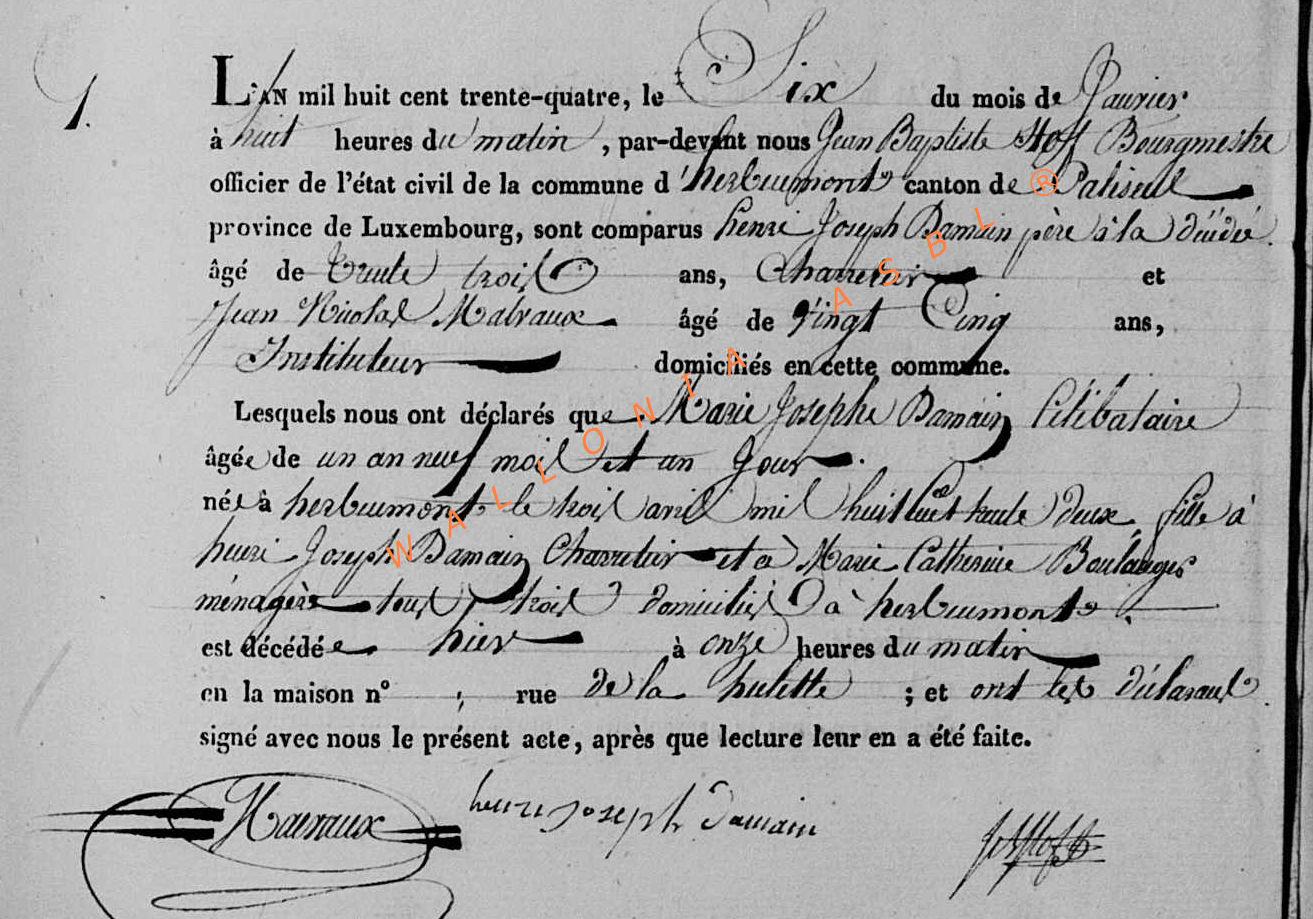 1.
L'AN mil huit cent trente-quatre, le Six du mois de Janvier
à huit heures du matin, par-devant nous Jean Baptiste Stoff Bourgmestre
officier de l'état civil de la commune d'herbeumont canton de Paliseul
province de Luxembourg, sont comparus henri Joseph Damain père à la décédée
âgé de trente trois ans, Charretier et
Jean Nicolas Malvaux âgé de vingt Cinq ans,
Instituteur domiciliés en cette commune.
Lesquels nous ont déclarés que Marie Josephe Damain Célibataire
âgée de un an neuf mois et un Jour
née à herbeumont le trois avril mil huit Cent trente deux, fille à
henri Joseph Damain Charretier et à Marie Catherine Boulanger
ménagère tous trois domiciliés à herbeumont.
est décédée hier à onze heures du matin
en la maison n° , rue de la hulette ; et ont les déclarants
signé avec nous le présent acte, après que lecture leur en a été faite.
Malvaux henri joseph damain
WALLONIA ASBL ®